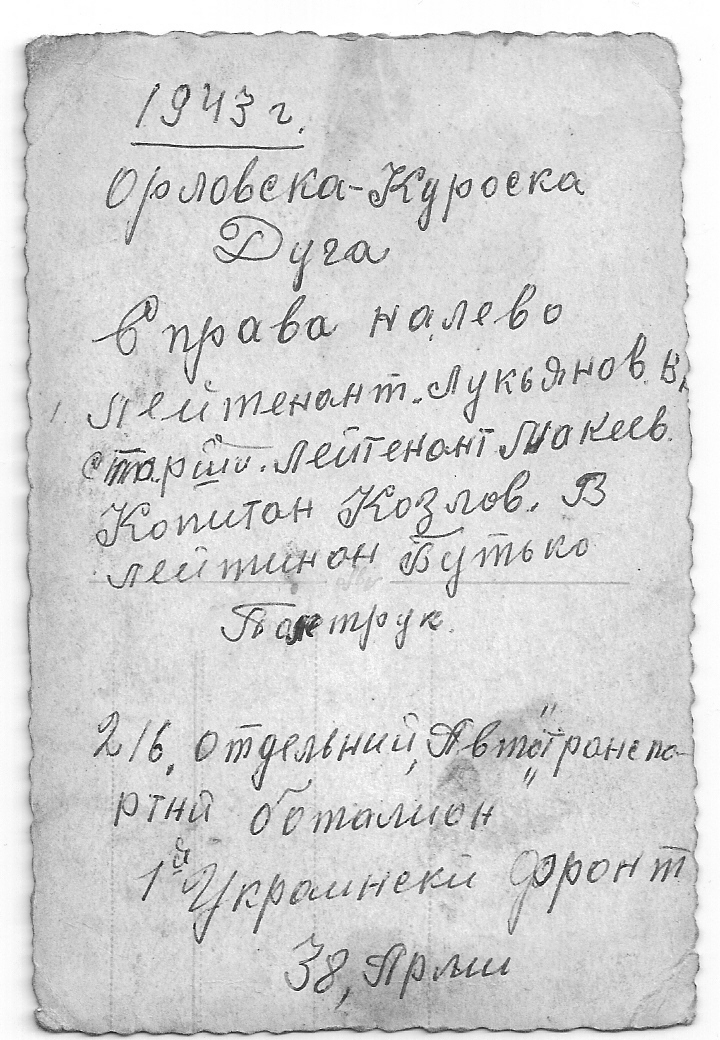 1943 г.
Орловска-Куроска
Дуга
Справа налево
Лейтенант. Лукьянов. В,
старши. лейтенант Макеев.
Копитан Козлов. В
лейтинан Бутько
216, отдельний, Автотранспо-
ртнй боталион
1й Украински фронт
38, Арми